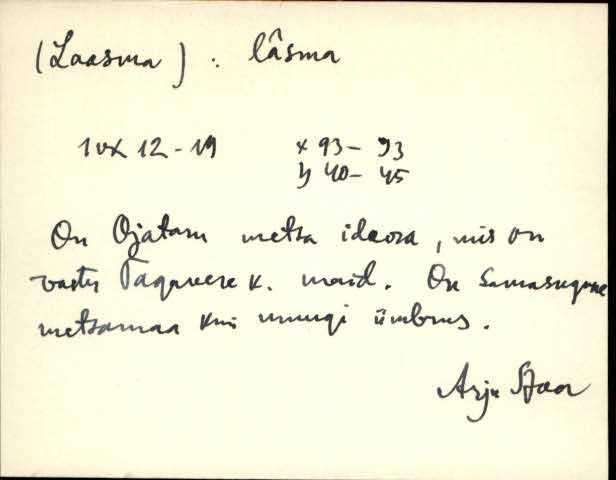 (Laasma) : lâsma
IVX 12-19 x 93- 93
y 40- 45
On Ojatam metsa idaosa, mis on
vastu Tagavere k. maid. On samasugune
metsamaa kui muugi ümbrus.
Arju